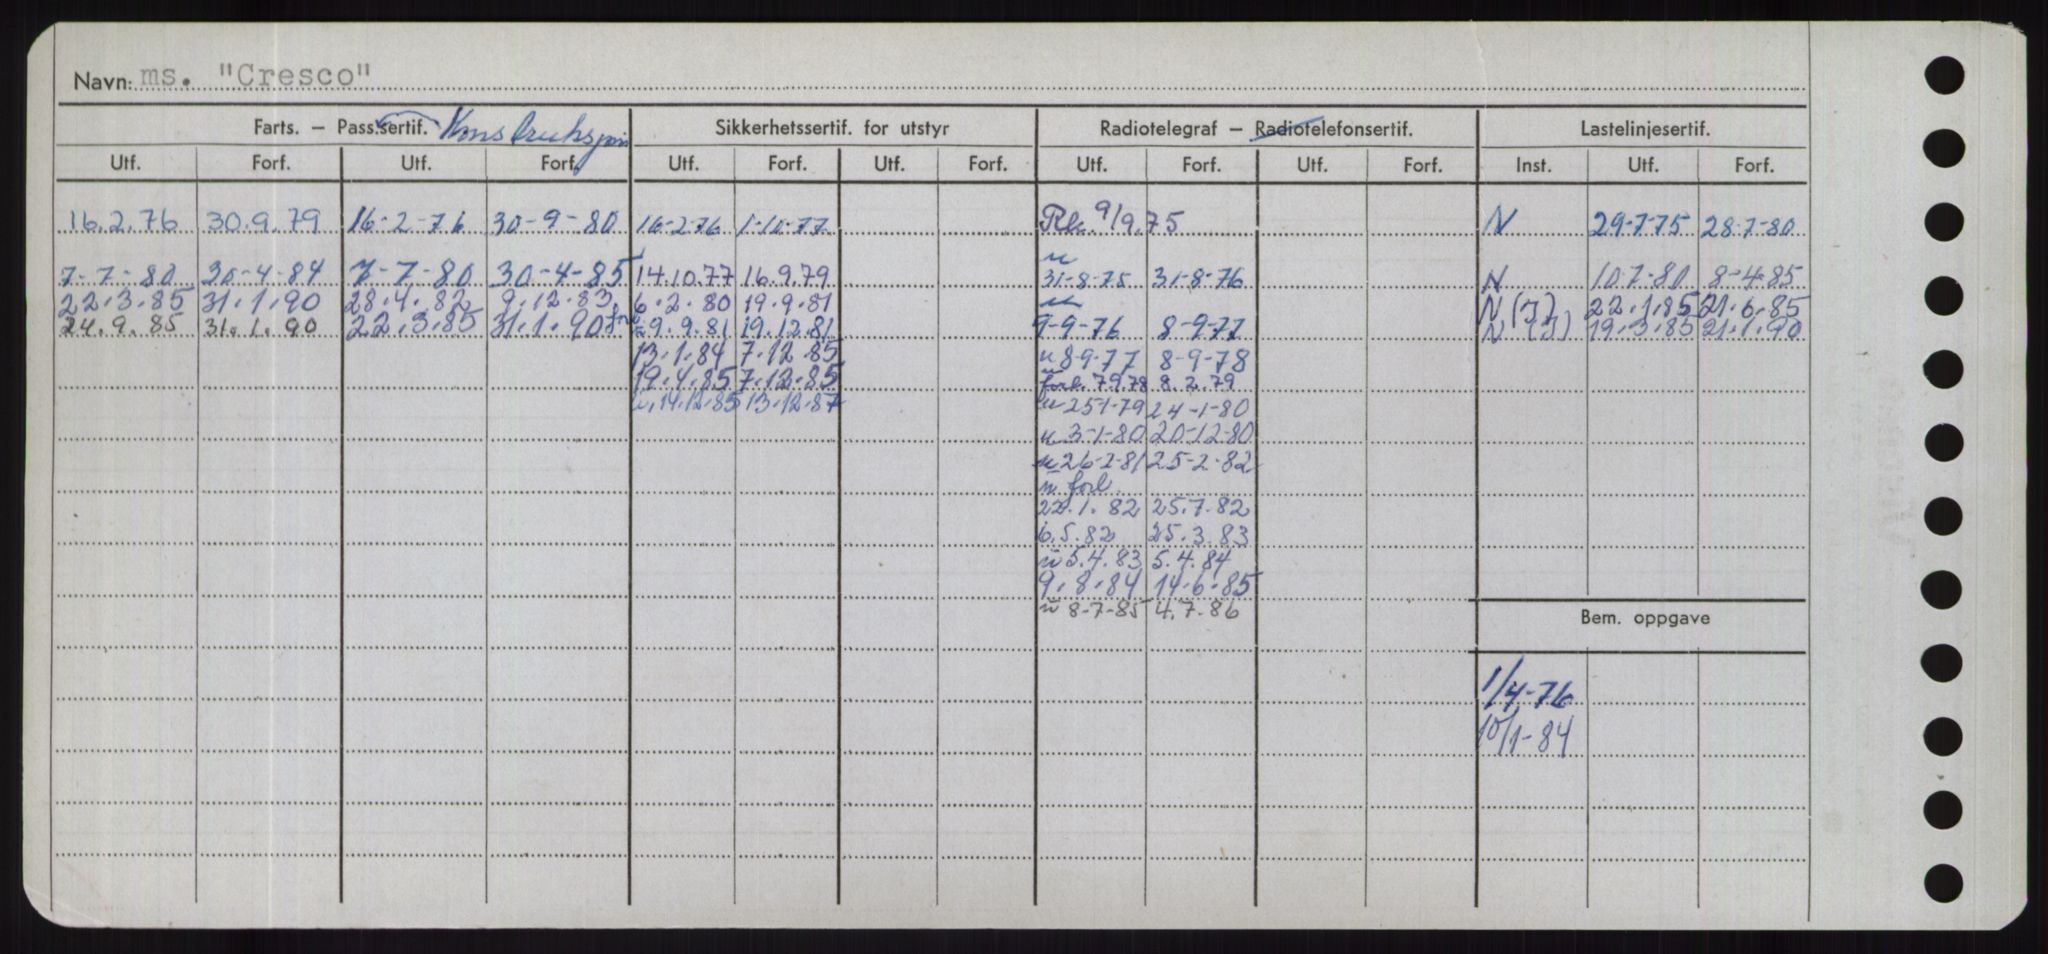 Navn: ms. "Cresco"
Farts. – Pass.sertif. Konstruksjon Sikkerhetssertif. for utstyr Radiotelegraf – Radiotelefonsertif. Lastelinjesertif.
Utf. Forf. Utf. Forf. Utf. Forf. Utf. Forf. Utf. Forf. Utf. Forf. Inst. Utf. Forf.
16.2.76 30.9.79 16-2-76 30-9-80 16-2-76 1-10-77 9/9.75 N 29-7-75 28-7-80
7-7-80 30-4-84 7-7-80 30-4-85 14.10.77 16.9.79 31-8-75 31-8-76 N 10-7-80 8-4-85
22.3.85 31.1.90 28.4.82 9.12.83 6.2.80 19.9.81 N (J) 22.1.85 21.6.85
24.9.85 31.1.90 22.3.85 31.1.90 9.9.81 19.12.81 9-9-76 8-9-77 N (J) 19.3.85 21.1.90
13.1.84 7.12.85 u 8-9-77 8-9-78
19.4.85 7.12.85 forl. 7.9.78 8.2.79
u. 14.12.85 13.12.87 u 25-1-79 24-1-80
u 3-1-80 20-12-80
u 26-2-81 25-2-82
u forl.
22.1.82 25.7.82
6.5.82 25.3.83
u 5.4.83 5.4.84
9.8.84 14.6.85
u 8-7-85 4.7.86
Bem. oppgave
1/4-76
10/1-84